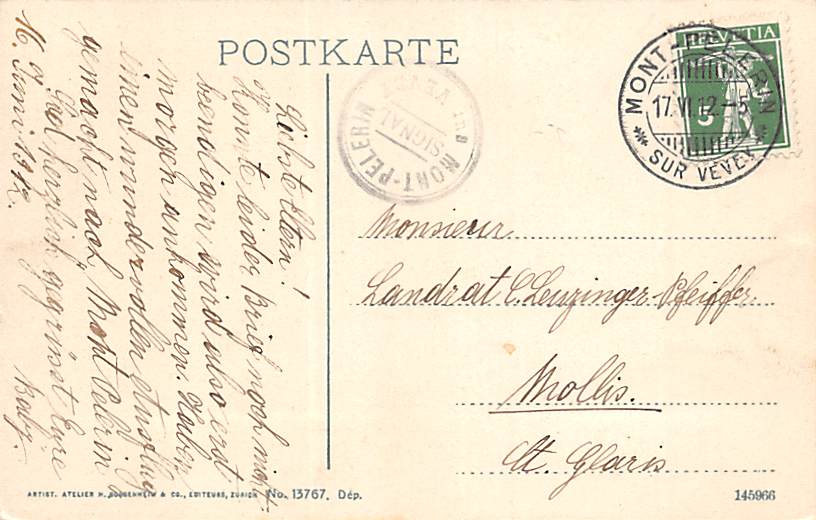 POSTKARTE
HELVETIA
5
MONT-PÉLERIN
17.VI.12.-5
SUR VEVEY
MONT-PELERIN
SIGNAL
sur VEVEY
Liebste Eltern!
Konnte leider Brief noch nicht
beendigen, wird also erst
morgen ankommen. Haben
einen wundervollen Ausflug
gemacht nach "Mont Pelerin"
Seid herzlich gegrüsst Eure
Baby.
16. Juni 1912.
Monsieur
Landrat C. Leuzinger-Pfeiffer
Mollis.
Ct. Glaris
ARTIST. ATELIER H. GUGGENHEIM & CO., EDITEURS, ZURICH No. 13767. Dép.
145966